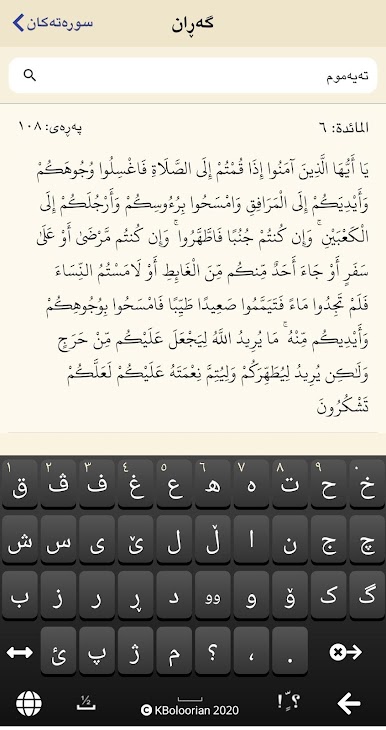 سورەتەکان
گەڕان
تەیەموم
المائدة: ٦
پەڕەی: ١٠٨
يَا أَيُّهَا الَّذِينَ آمَنُوا إِذَا قُمْتُمْ إِلَى الصَّلَاةِ فَاغْسِلُوا وُجُوهَكُمْ
وَأَيْدِيَكُمْ إِلَى الْمَرَافِقِ وَامْسَحُوا بِرُءُوسِكُمْ وَأَرْجُلَكُمْ إِلَى
الْكَعْبَيْنِ ۚ وَإِن كُنتُمْ جُنُبًا فَاطَّهَّرُوا ۚ وَإِن كُنتُم مَّرْضَىٰ أَوْ عَلَىٰ
سَفَرٍ أَوْ جَاءَ أَحَدٌ مِّنكُم مِّنَ الْغَابِطِ أَوْ لَامَسْتُمُ النِّسَاءَ
فَلَمْ تَجِدُوا مَاءً فَتَيَمَّمُوا صَعِيدًا طَيِّبًا فَامْسَحُوا بِوُجُوهِكُمْ
وَأَيْدِيكُم مِّنْهُ ۚ مَا يُرِيدُ اللَّهُ لِيَجْعَلَ عَلَيْكُم مِّنْ حَرَجٍ
وَلَٰكِن يُرِيدُ لِيُطَهِّرَكُمْ وَلِيُتِمَّ نِعْمَتَهُ عَلَيْكُمْ لَعَلَّكُمْ
تَشْكُرُونَ
١ ٢ ٣ ٤ ٥ ٦ ٧ ٨ ٩ ٠
ق ڤ ف غ ع ھ ە ت ح خ
ش س ی ێ ل ڵ ا ن ج چ
ب ز ر ڕ د وو و ۆ ک گ
ئ پ ژ م ؟ ، .
½ © KBoloorian 2020 !؟